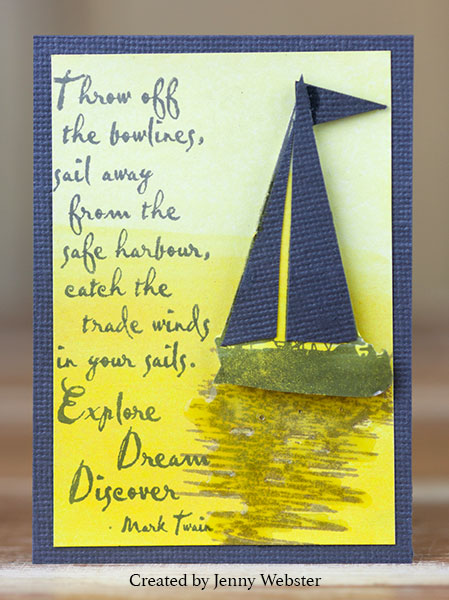 Throw off
the bowlines,
sail away
from the
safe harbour,
catch the
trade winds
in your sails.
Explore
Dream
Discover
- Mark Twain
Created by Jenny Webster